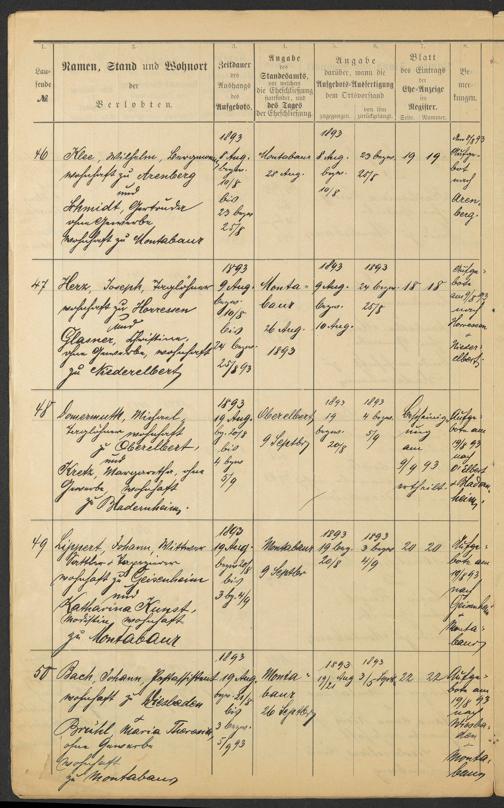 1. 2. 3. 4. 5. 6. 7. 8.
Lau-
fende
№
Namen, Stand und Wohnort
der
Verlobten.
Zeitdauer
des
Aushangs
des
Aufgebots.
Angabe
des
Standesamts,
vor welchem
die Eheschließung
stattfindet, und
des Tages
der Eheschließung
Angabe
darüber, wann die
Aufgebots-Ausfertigung
dem Ortsvorstand
zugegangen.
von ihm
zurückgelangt.
Blatt
des Eintrags
der
Ehe-Anzeige
im
Register.
Seite. Nummer.
Be-
mer-
kungen.
46
Klee, Wilhelm, Bergmann
wohnhaft zu Arenberg
und
Schmidt, Gertruda
ohne Gewerbe
wohnhaft zu Montabaur
1893
8 Aug.
bezw.
10/8
bis
23 bezw
25/8
Montabaur
28 Aug.
1893
8 Aug.
bezw.
10/8
23 bezw.
25/8
19 19
Aufge-
bot
nach
Aren-
berg.
47
Herz, Joseph, Taglöhner
wohnhaft zu Horressen
und
Glasner, Christine,
ohne Gewerbe, wohnhaft
zu Niederelbert
1893
9 Aug.
bezw.
10/8
bis
24 bezw.
25/8 93
Monta-
baur
26 Aug.
1893
1893
9 Aug.
bezw.
10 Aug.
1893
24 bezw
25/8
18 18
Aufge-
bote
nach
Horressen
u
Nieder-
elbert
48
Domermuth, Michael,
Taglöhner wohnhaft
zu Oberelbert,
und
Kretz, Margaretha, ohne
Gewerbe, wohnhaft
zu Bladernheim.
1893
19 Aug.
bz. 20/8
bis
4 bezw
5/9
Oberelbert
9 Septbr
1893
19
bezw.
20/8
1893
4 bezw.
5/9
Bescheinig-
ung
am
9/9 93
ertheilt.
Aufge-
bote am
19/8 93
nach
O'elbert
u Bladern-
heim.
49
Lippert, Johann, Wittwer
Sattler u Tapezierer
wohnhaft zu Geisenheim
und
Katharina Kunst,
Modistin, wohnhaft
zu Montabaur
1893
19 Aug.
bezw 20/8
bis
3 bz 4/9
Montabaur
9 Septbr
1893
19 bez.
20/8
1893
3 bezw
4/9
20 20
Aufge-
bote am
19/8 93
nach
Geisenheim
u
Monta-
baur
50
Bach, Johann, Postassistent
wohnhaft zu Wiesbaden
u
Breidl, Maria Theresia
ohne Gewerbe
wohnhaft
zu Montabaur
1893
19 Aug.
bezw. 21/8
bis
3 bezw.
5/9 93
Monta-
baur
26 Septbr
1893
19/21 Aug
1893
3/5 Sept.
22 22
Aufge-
bote am
19/8 93
nach
Wiesba-
den
u
Monta-
baur